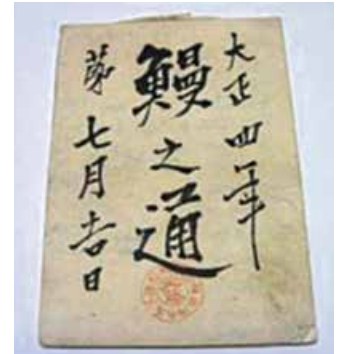 大正四年
鰻之通
七月吉日